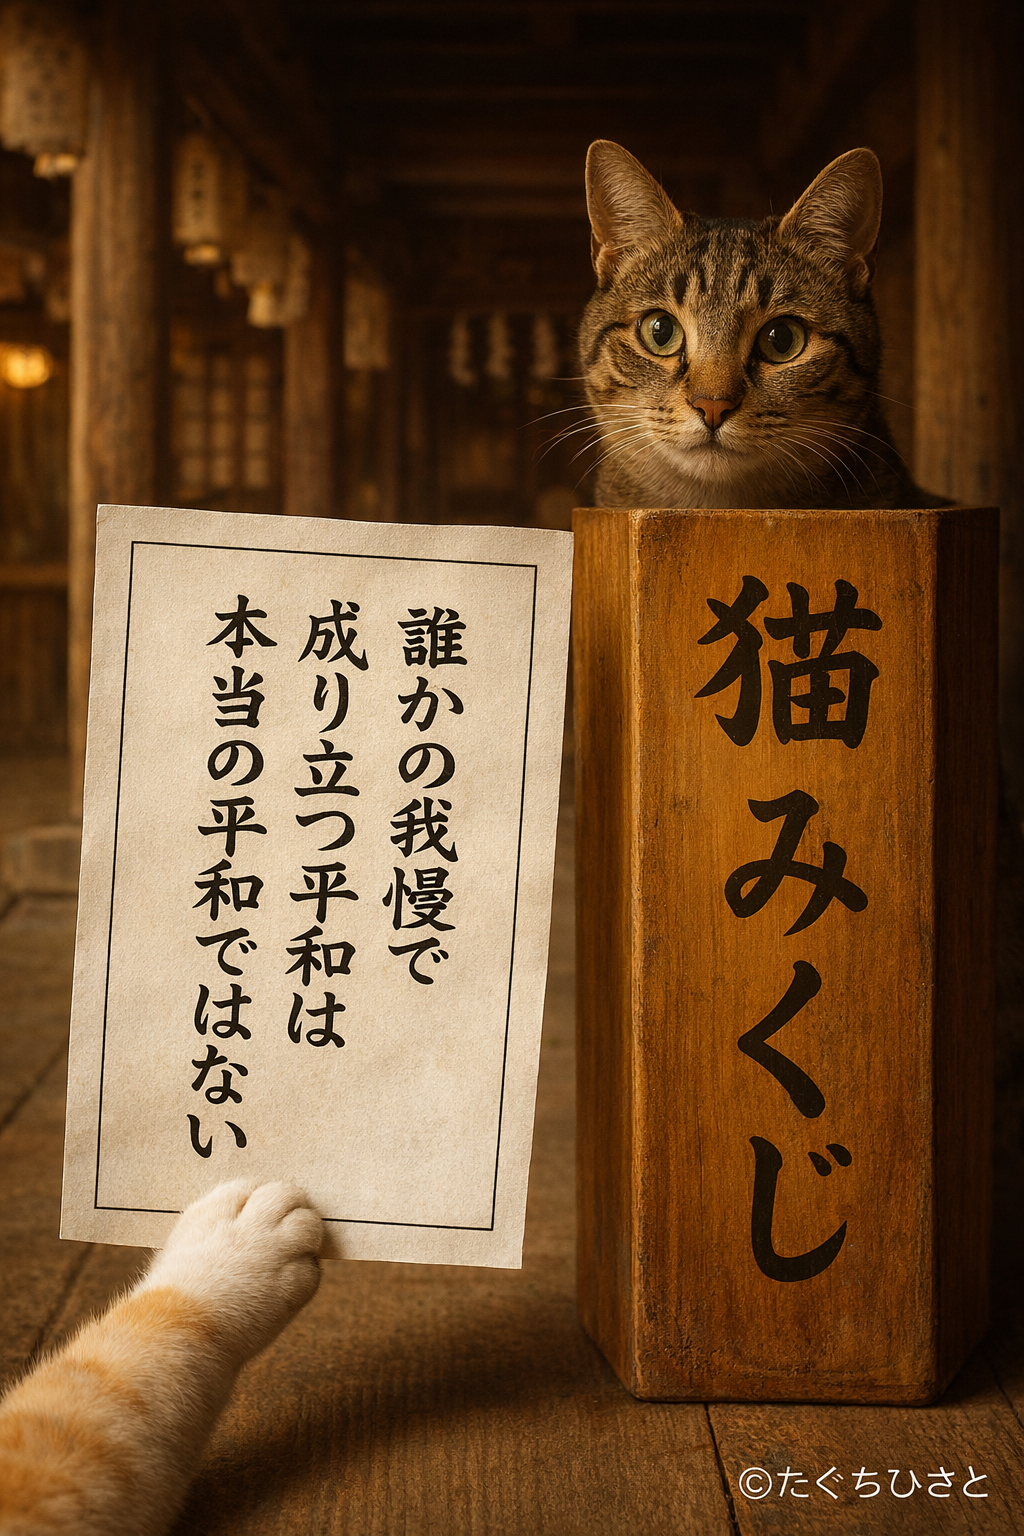 誰かの我慢で
成り立つ平和は
本当の平和ではない
猫みくじ
©たぐちひさと